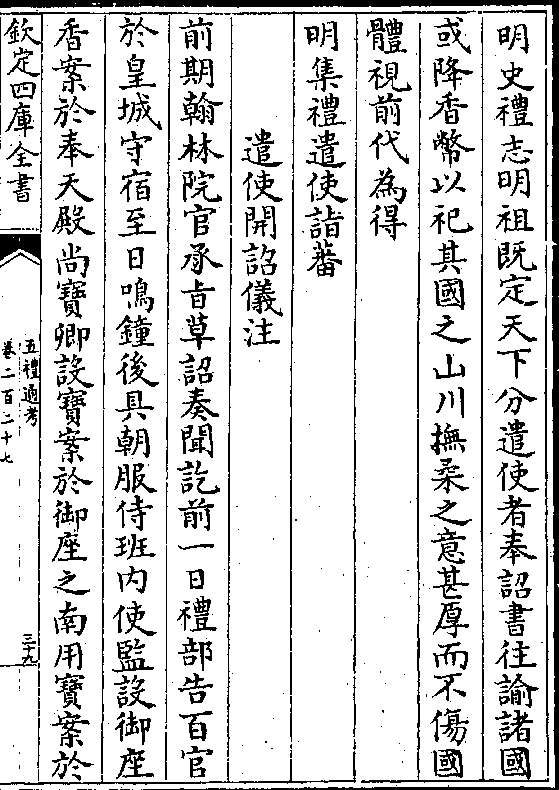 明史禮志明祖既定天下分遣使者奉詔書往諭諸國
或降香幣以祀其國之山川撫柔之意甚厚而不傷國
體視前代為得
明集禮遣使詣蕃
遣使開詔儀注
前期翰林院官承旨草詔奏聞訖前一日禮部告百官
於皇城守宿至日鳴鐘後具朝服侍班内使監設御座
香案於奉天殿尚寶卿設寶案於御座之南用寶案於
欽定四庫全書
五禮通考
卷二百二十七
三十九